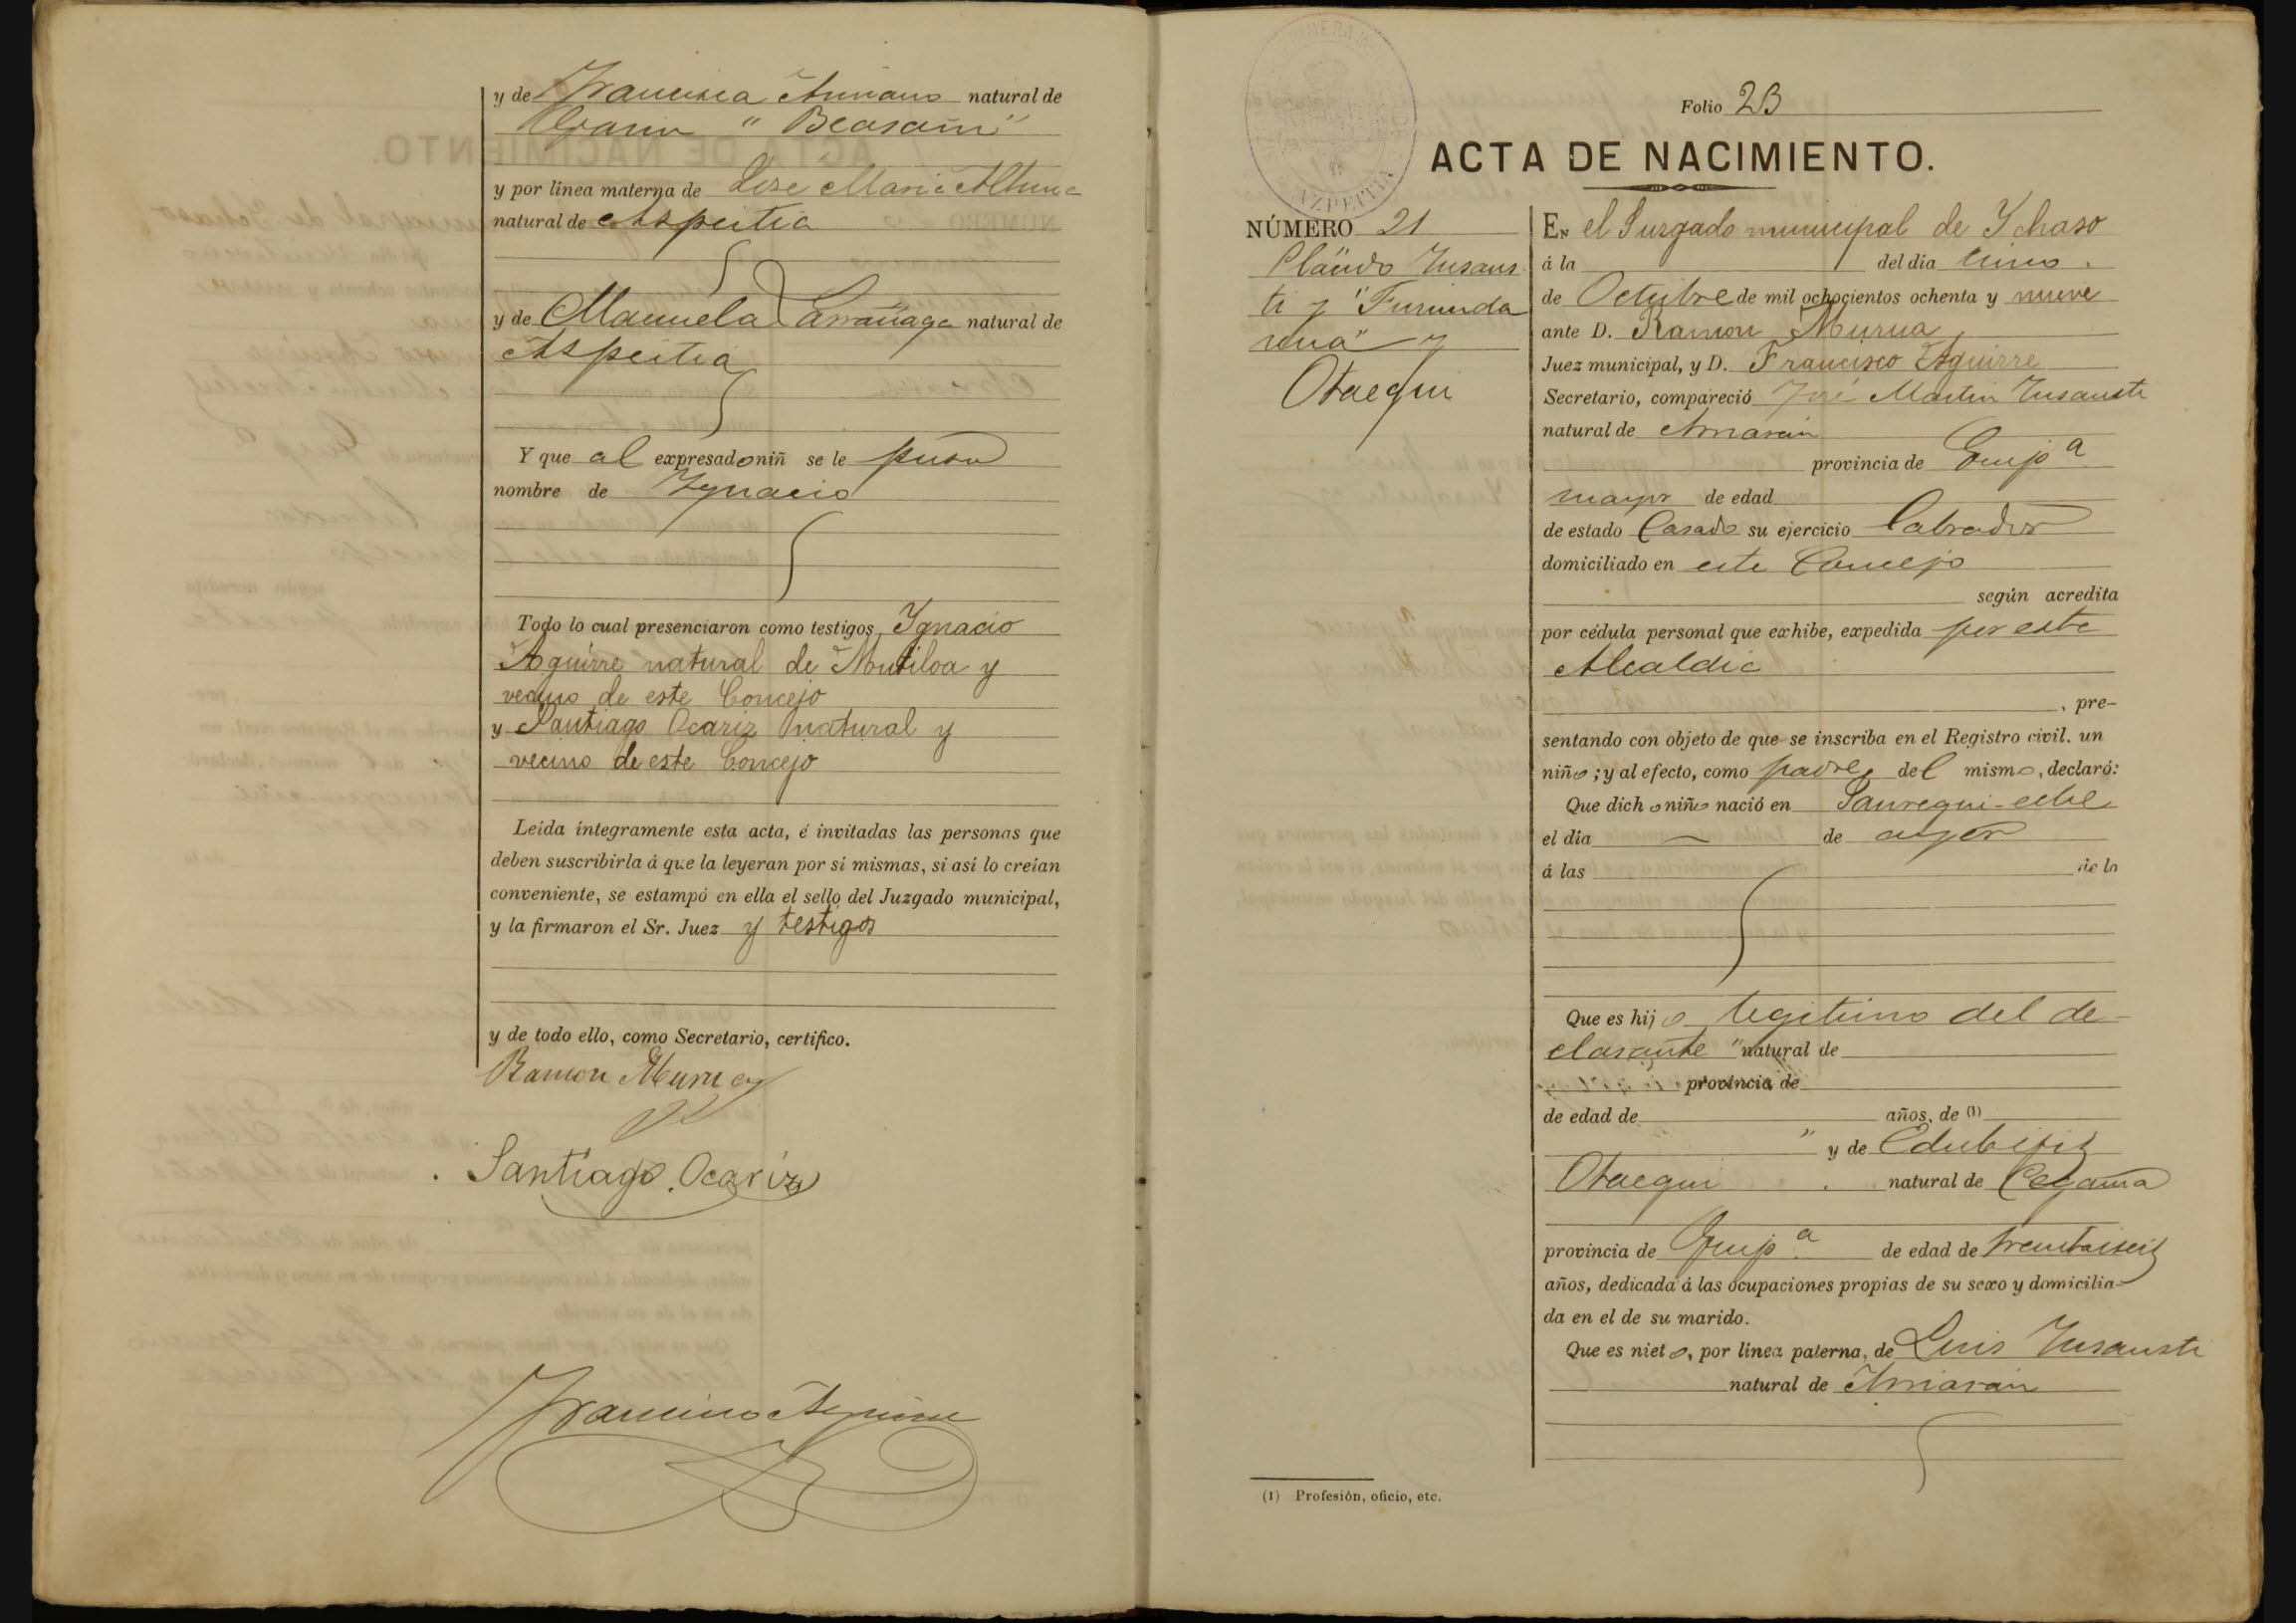 y de Francisca natural de
"Beasain"
y por línea materna de José Maria Altuna
natural de Aspeitia
y de Manuela Larrañaga natural de
Aspeitia
Y que al expresado niñ se le puso
nombre de Ygnacio
Todo lo cual presenciaron como testigos Ygnacio
Aguirre natural de Mutiloa y
vecino de este Concejo
y Santiago Ocariz natural y
vecino de este Concejo
Leida íntegramente esta acta, é invitadas las personas que
deben suscribirla á que la leyeran por sí mismas, si así lo creían
conveniente, se estampó en ella el sello del Juzgado municipal,
y la firmaron el Sr. Juez y testigos
y de todo ello, como Secretario, certifico.
Ramon Murua
Santiago Ocariz
Francisco Aguirre
Folio 23
ACTA DE NACIMIENTO.
AZPEITIA
NÚMERO 21
Plácido Insaus
ti y
y
Otaegui
EN el Juzgado municipal de Ychaso
á la del día cinco
de Octubre de mil ochocientos ochenta y nueve
ante D. Ramon Murua
Juez municipal, y D. Francisco Aguirre
Secretario, compareció José Martin Insausti
natural de
provincia de Guipª
mayor de edad
de estado Casado su ejercicio labrador
domiciliado en este Concejo
según acredita
por cédula personal que exhibe, expedida por esta
Alcaldia
, pre-
sentando con objeto de que se inscriba en el Registro civil. un
niño; y al efecto, como padre del mismo, declaró:
Que dicho niño nació en Jauregui-eche
el día de ayer
á las de la
Que es hijo legitimo del de-
clarante " natural de
provincia de
de edad de años, de (1)
" y de Edubigis
Otaegui natural de Cegama
provincia de Guipª de edad de treintaiseis
años, dedicada á las ocupaciones propias de su sexo y domicilia-
da en el de su marido.
Que es nieto, por línea paterna, de Luis Insausti
natural de
(1) Profesión, oficio, etc.